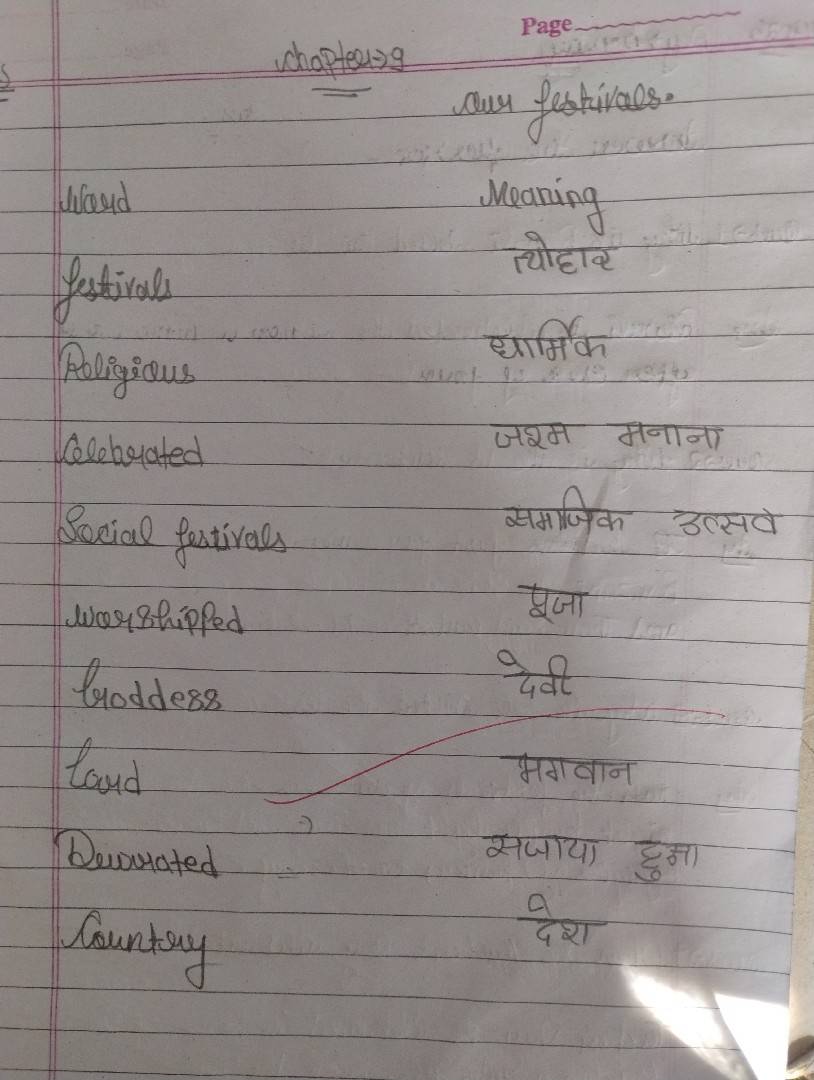 Page
Chapter→9
Our festivals.
Word Meaning
festivals त्योहार
Religious धार्मिक
Celebrated जश्म मनाना
Social festivals समाजिक उत्सव
Worshipped पूजा
Goddess देवी
Lord भगवान
Decorated सजाया हुआ
Country देश